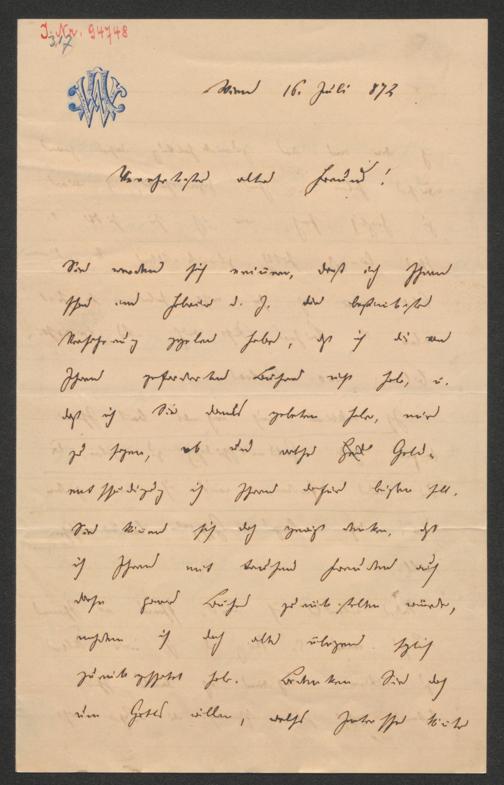 J. Nr. 94748
317
Wien 16. Juli 872
Verehrtester alter Freund!
Sie werden sich erinnern, dass ich Ihnen
schon im Februar d. J. die bestimteste
Versicherung gegeben habe, dss ich die von
Ihnen geforderten Bücher nicht habe, u.
dass ich Sie damals gebeten habe, mir
zu sagen, ob und welche Geld-
entschädigung ich Ihnen dafür leisten soll.
Sie können sich doch gewiss denken, dss
ich Ihnen mit tausend Freuden auch
diese paar Bücher zurükstellen würde,
nachdem ich doch alle übrigen
zurükgestellt habe. Bedenken Sie doch
um Gottes willen, welches Interesse könte